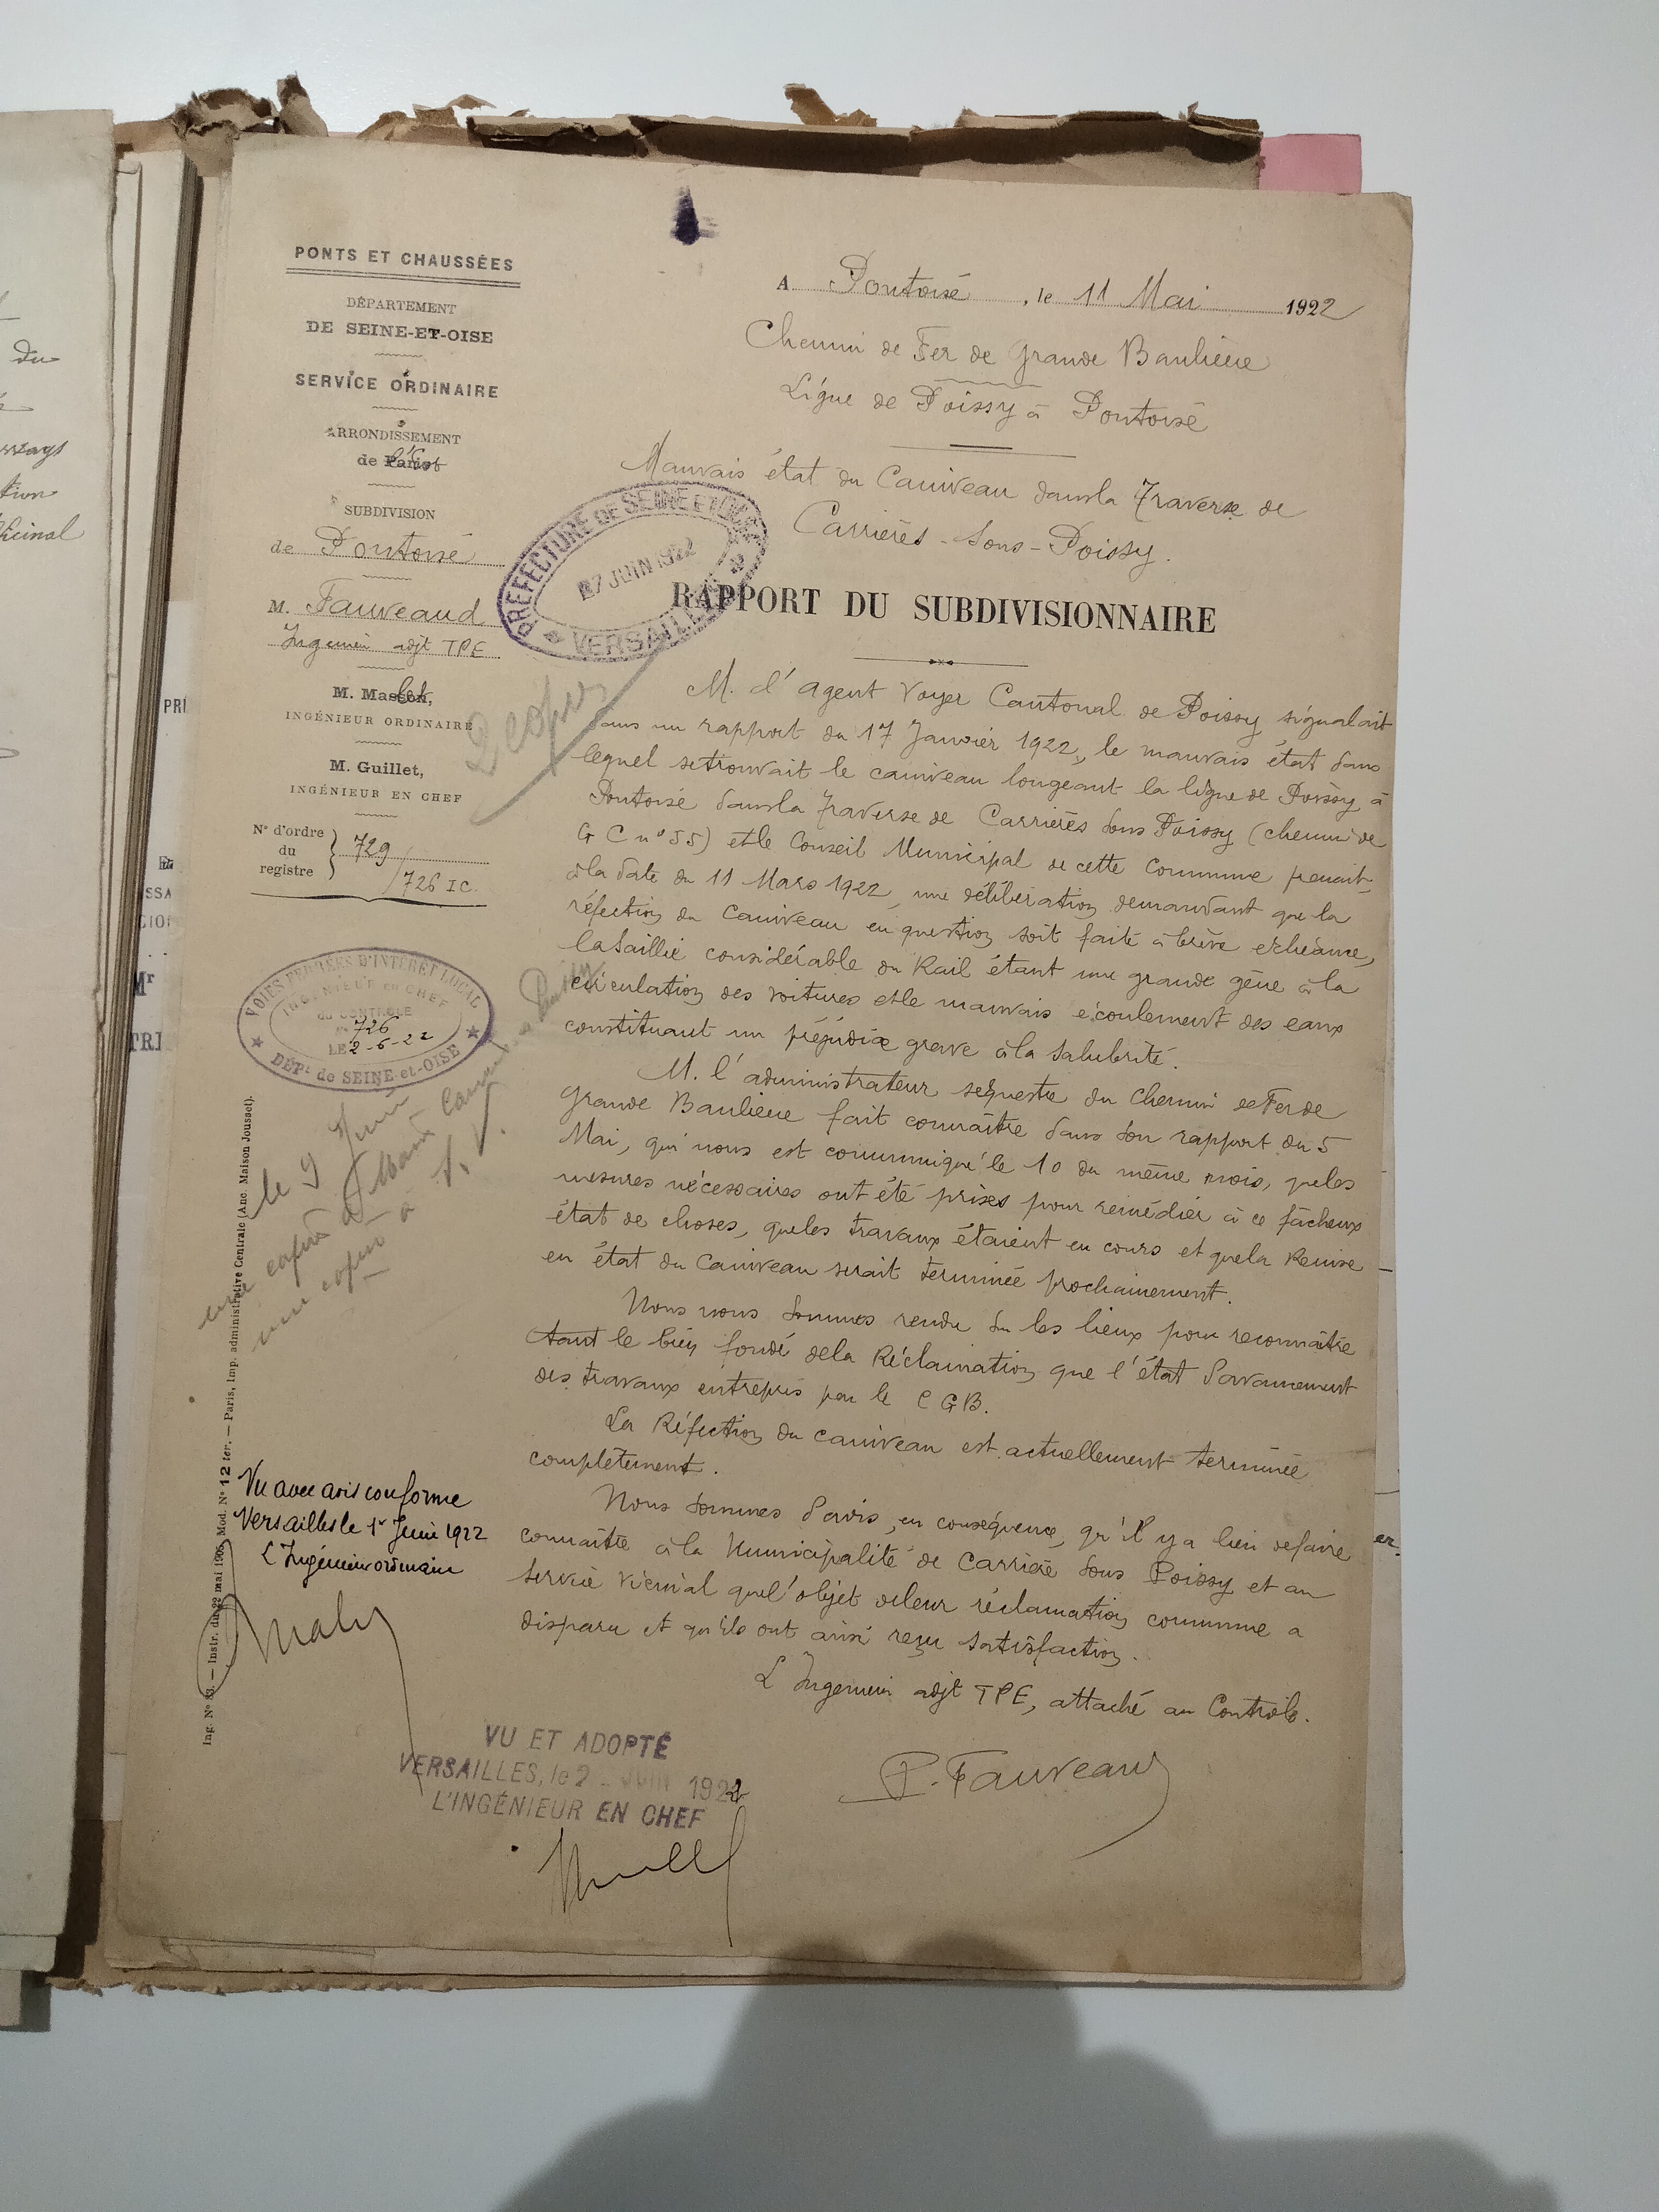 PONTS ET CHAUSSÉES
DÉPARTEMENT
DE SEINE-ET-OISE
SERVICE ORDINAIRE
ARRONDISSEMENT
de Paris
SUBDIVISION
de Pontoise
M. Fauveaud
Ingenieur adjt TPE
M. Masson,
INGÉNIEUR ORDINAIRE
M. Guillet,
INGÉNIEUR EN CHEF
N° d'ordre
du
registre
729
726 IC.
A Pontoise, le 11 Mai 1922
Chemin de Fer de Grande Banlieue
Ligne de Poissy à Pontoise
Mauvais état du Caniveau dans la Traverse de
Carrières-Sous-Poissy.
PREFECTURE DE SEINE ET OISE
7 JUIN 1922
VERSAILLES
RAPPORT DU SUBDIVISIONNAIRE
2 copies
M. l'agent Voyer Cantonal de Poissy signalait
dans un rapport du 17 Janvier 1922, le mauvais état dans
lequel se trouvait le caniveau longeant la ligne de Poissy à
Pontoise dans la Traverse de Carrières Sous Poissy (chemin de
G C n° 55) et le Conseil Municipal de cette Commune prenait,
à la date du 11 Mars 1922, une délibération demandant que la
réfection du Caniveau en question soit faite à brève echéance,
la Saillie considérable du Rail étant une grande gêne à la
circulation des voitures et le mauvais écoulement des eaux
constituant un préjudice grave à la Salubrité.
M. l'administrateur sequestre du Chemin de Fer de
Grande Banlieue fait connaître dans son rapport du 5
Mai, qui nous est communiqué le 10 du même mois, que les
mesures nécessaires ont été prises pour remédier à ce fâcheux
état de choses, que les travaux étaient en cours et que la Remise
en état du Caniveau serait terminée prochainement.
Nous nous sommes rendu sur les lieux pour reconnaître
tant le bien fondé de la Réclamation que l'état d'avancement
des travaux entrepris par le C G B.
La Réfection du caniveau est actuellement terminée
complètement.
Nous sommes d'avis, en conséquence, qu'il y a lieu de faire
connaître à la Municipalité de Carrière Sous Poissy et au
Service Vicinal que l'objet de leur réclamation commune a
disparu et qu'ils ont ainsi reçu satisfaction.
L'Ingenieur adjt TPE, attaché au Contrôle.
P. Fauveaud
VOIES FERRÉES D'INTÉRÊT LOCAL
INGÉNIEUR en CHEF
du CONTRÔLE
N° 726
LE 2-6-22
DÉPt de SEINE-et-OISE
le 9 Juin
une copie à Maire Carrières Poissy
une copie à S. V.
Vu avec avis conforme
Versailles le 1er Juin 1922
L'Ingénieur ordinaire
VU ET ADOPTÉ
VERSAILLES, le 2 JUIN 1922
L'INGÉNIEUR EN CHEF
Ing. N° 33. — Instr. du 22 mai 1905. Mod. N° 12 ter. — Paris, Imp. administrative Centrale (Anc. Maison Jousset).